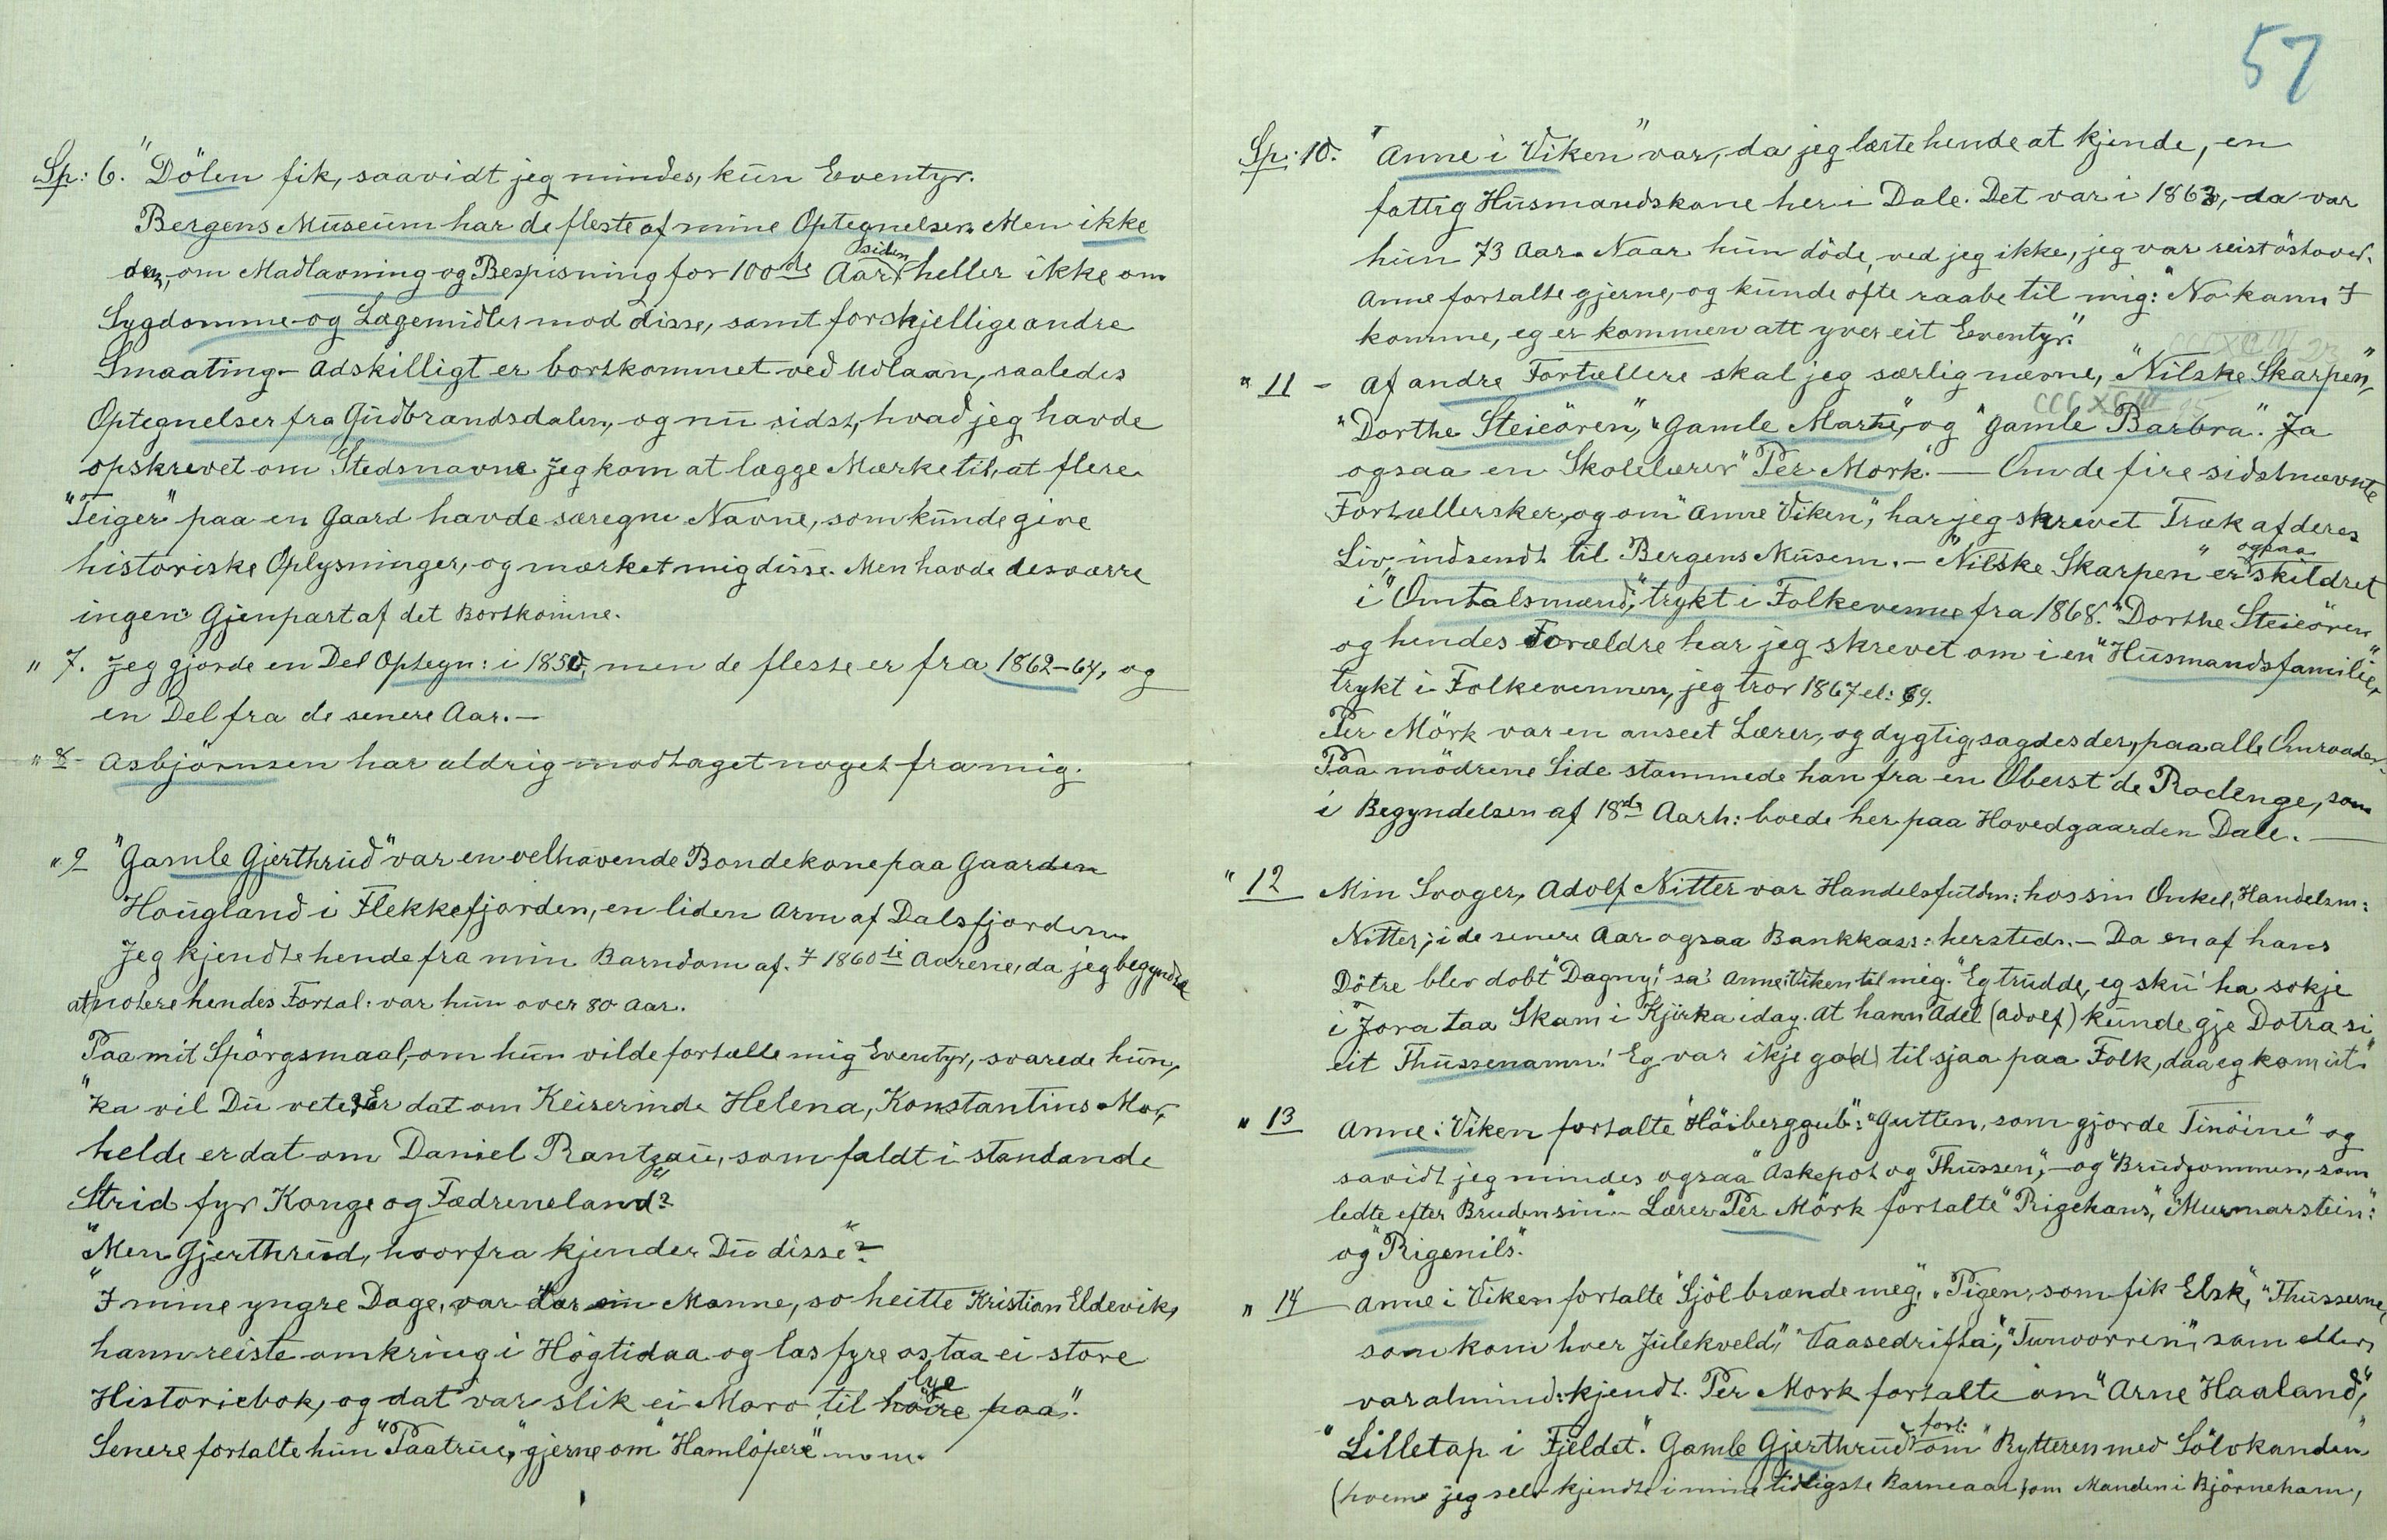 Sp: 6. "Dölen fik, saavidt jeg mindes, kun Eventyr.
Bergens Museum har de fleste af mine Optegnelser. Men ikke
den, om Madlavning og Bespisning for 100de Aar siden heller ikke om
Sygdomme og Lægemidler mod disse, samt forskjellige andre
Smaating. – Adskilligt er bortkommet ved Udlaan, saaledes
Optegnelser fra Gudbrandsdalen, og nu sidst, hvad jeg havde
opskrevet om Stedsnavne. Jeg kom at lægge Mærke til, at flere
"Teiger" paa en Gaard havde særegne Navne, som kunde give
historiske Oplysninger, og mærket mig disse. Men havde desværre
ingen Gjenpart af det Bortkomne.
" 7. Jeg gjorde en Del Optegn: i 1850, men de fleste er fra 1862–64, og
en Del fra de senere Aar. –
" 8 – Asbjörnsen har aldrig modtaget noget fra mig.
" 9 "Gamle Gjerthrud" var en velhavende Bondekone paa Gaarden
Hougland i Flekkefjorden, en liden Arm af Dalsfjorden.
Jeg kjendte hende fra min Barndom af. I 1860te Aarene, da jeg begyndte
at notere hendes Fortæl: var hun over 80 Aar.
Paa mit Spörgsmaal, om hun vilde fortælle mig Eventyr, svarede hun,
"Ka vil Du vete? Er dat om Keiserinde Helena, Konstantins Mor,
helde er dat om Daniel Rantzau, som faldt i standande
Strid fyr Konge og Fædreneland"?
"Men Gjerthrud, hvorfra kjender Du disse"?
"I mine yngre Dage, var dar ein Manne, so heitte Kristian Eldevik,
hann reiste omkring i Högtidaa og las fyre os taa ei store
Historiebok, og dat var slik ei Moro til höire lye paa".
Senere fortalte hun "Taatrue," gjerne om "Hamlöpere" m. m.
57
Sp: 10. "Anne i Viken" var, da jeg lærte hende at kjende, en
fattig Husmandskone her i Dale. Det var i 1863, da var
hun 73 Aar. Naar hun döde, ved jeg ikke, jeg var reist östover.
Anne fortalte gjerne, og kunde ofte raabe til mig: "No kann I
komme, eg er kommen att yver eit Eventyr".
" 11 – Af andre Fortællere skal jeg særlig nævne, "Nilske Skarpen",
"Dorthe Steiören", "Gamle Marte", og "Gamle Barbra". Ja
ogsaa en Skolelærer "Per Mork". – Om de fire sidstnævnte
Fortællersker, og om "Anne Viken", har jeg skrevet Træk af deres
Liv, indsendt til Bergens Museum. – "Nilske Skarpen" er ogsaa skildret
i "Omtalsmænd", trykt i Folkevennen fra 1868. "Dorthe Steiören"
og hendes Forældre har jeg skrevet om i en "Husmandsfamilie,"
trykt i Folkevennen, jeg tror 1867 el: 69.
Per Mörk var en anseet Lærer, og dygtig, sagdes der, paa alle Omraader.
Paa mödrene Side stammede han fra en Oberst de Rodenge, som
i Begyndelsen af 18de Aarh: boede her paa Hovedgaarden Dale. –
" 12 Min Svoger, Adolf Nitter var Handelsfuldm: hos sin Onkel, Handelsm:
Nitter; i de senere Aar ogsaa Bankkass: hersteds. – Da en af hans
Dötre blev döbt "Dagny", sa' Anne i Viken til mig. "Eg trudde, eg sku' ha sokje
i Jora taa Skam i Kjirka idag. At hann Adel (Adolf) kunde gje Dotra si
eit Thussenamn! Eg var ikje god til sjaa paa Folk, daa eg kom ut."
" 13 Anne i Viken fortalte "Höiberggub": "Gutten, som gjorde Tinöine" og
savidt jeg mindes ogsaa "Askepot og Thussen", – og "Brudgommen, som
ledte efter Bruden sin" – Lærer Per Mörk fortalte "Rigehans", "Murmarstein":
og "Rigenils".
" 14 Anne i Viken fortalte "Sjöl brænde meg", "Pigen, som fik Elsk", "Thusserne,
som kom hver Julekveld", "Vaasedrifta", "Tunvorren", som ellers
var almind: kjendt. Per Mork fortalte om "Arne Haaland",
"Lilletap i Fjeldet". Gamle Gjerthrud fort: om "Rytteren med Sölvkanden"
(hvem jeg selv kjendte i mine tidligste Barneaar) om Manden i Björneham,